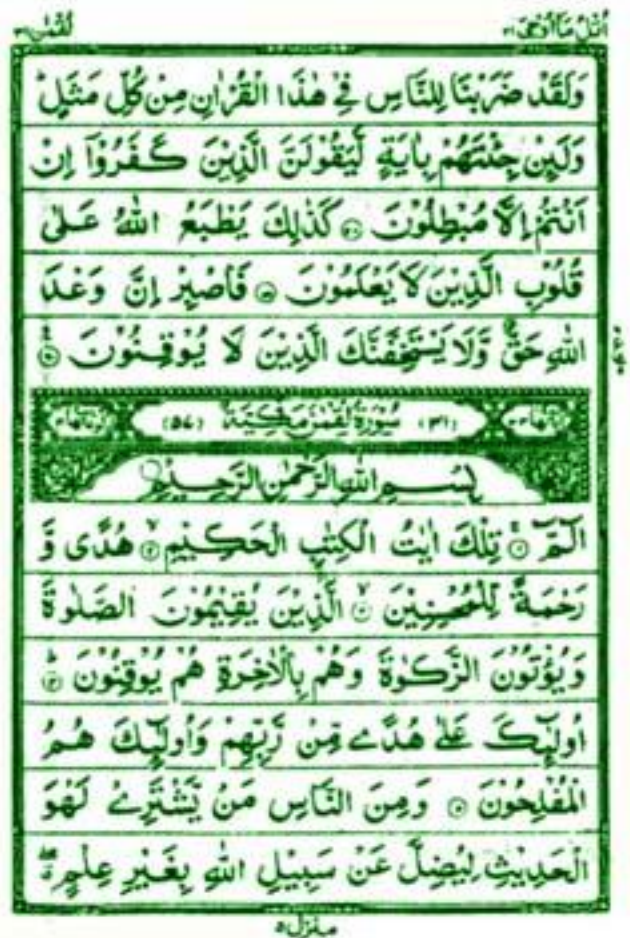 اتل ما اوحی ۲۱
لقمٰن ۳۱
وَلَقَدْ ضَرَبْنَا لِلنَّاسِ فِیْ هٰذَا الْقُرْاٰنِ مِنْ كُلِّ مَثَلٍ ؕ
وَلَىِٕنْ جِئْتَهُمْ بِاٰیَةٍ لَّیَقُوْلَنَّ الَّذِیْنَ كَفَرُوْۤا اِنْ
اَنْتُمْ اِلَّا مُبْطِلُوْنَ ۝۵۸ كَذٰلِكَ یَطْبَعُ اللّٰهُ عَلٰی
قُلُوْبِ الَّذِیْنَ لَا یَعْلَمُوْنَ ۝۵۹ فَاصْبِرْ اِنَّ وَعْدَ
اللّٰهِ حَقٌّ وَّلَا یَسْتَخِفَّنَّكَ الَّذِیْنَ لَا یُوْقِنُوْنَ ۝۶۰
(۳۱) سُوْرَةُ لُقْمٰنَ مَكِّیَّةٌ (۵۷)
بِسْمِ اللّٰهِ الرَّحْمٰنِ الرَّحِیْمِ
الٓمّٓ ۝۱ تِلْكَ اٰیٰتُ الْكِتٰبِ الْحَكِیْمِ ۝۲ هُدًی وَّ
رَحْمَةً لِّلْمُحْسِنِیْنَ ۝۳ الَّذِیْنَ یُقِیْمُوْنَ الصَّلٰوةَ
وَیُؤْتُوْنَ الزَّكٰوةَ وَهُمْ بِالْاٰخِرَةِ هُمْ یُوْقِنُوْنَ ۝۴
اُولٰٓىِٕكَ عَلٰی هُدًی مِّنْ رَّبِّهِمْ وَاُولٰٓىِٕكَ هُمُ
الْمُفْلِحُوْنَ ۝۵ وَمِنَ النَّاسِ مَنْ یَّشْتَرِیْ لَهْوَ
الْحَدِیْثِ لِیُضِلَّ عَنْ سَبِیْلِ اللّٰهِ بِغَیْرِ عِلْمٍ
منزل ۵